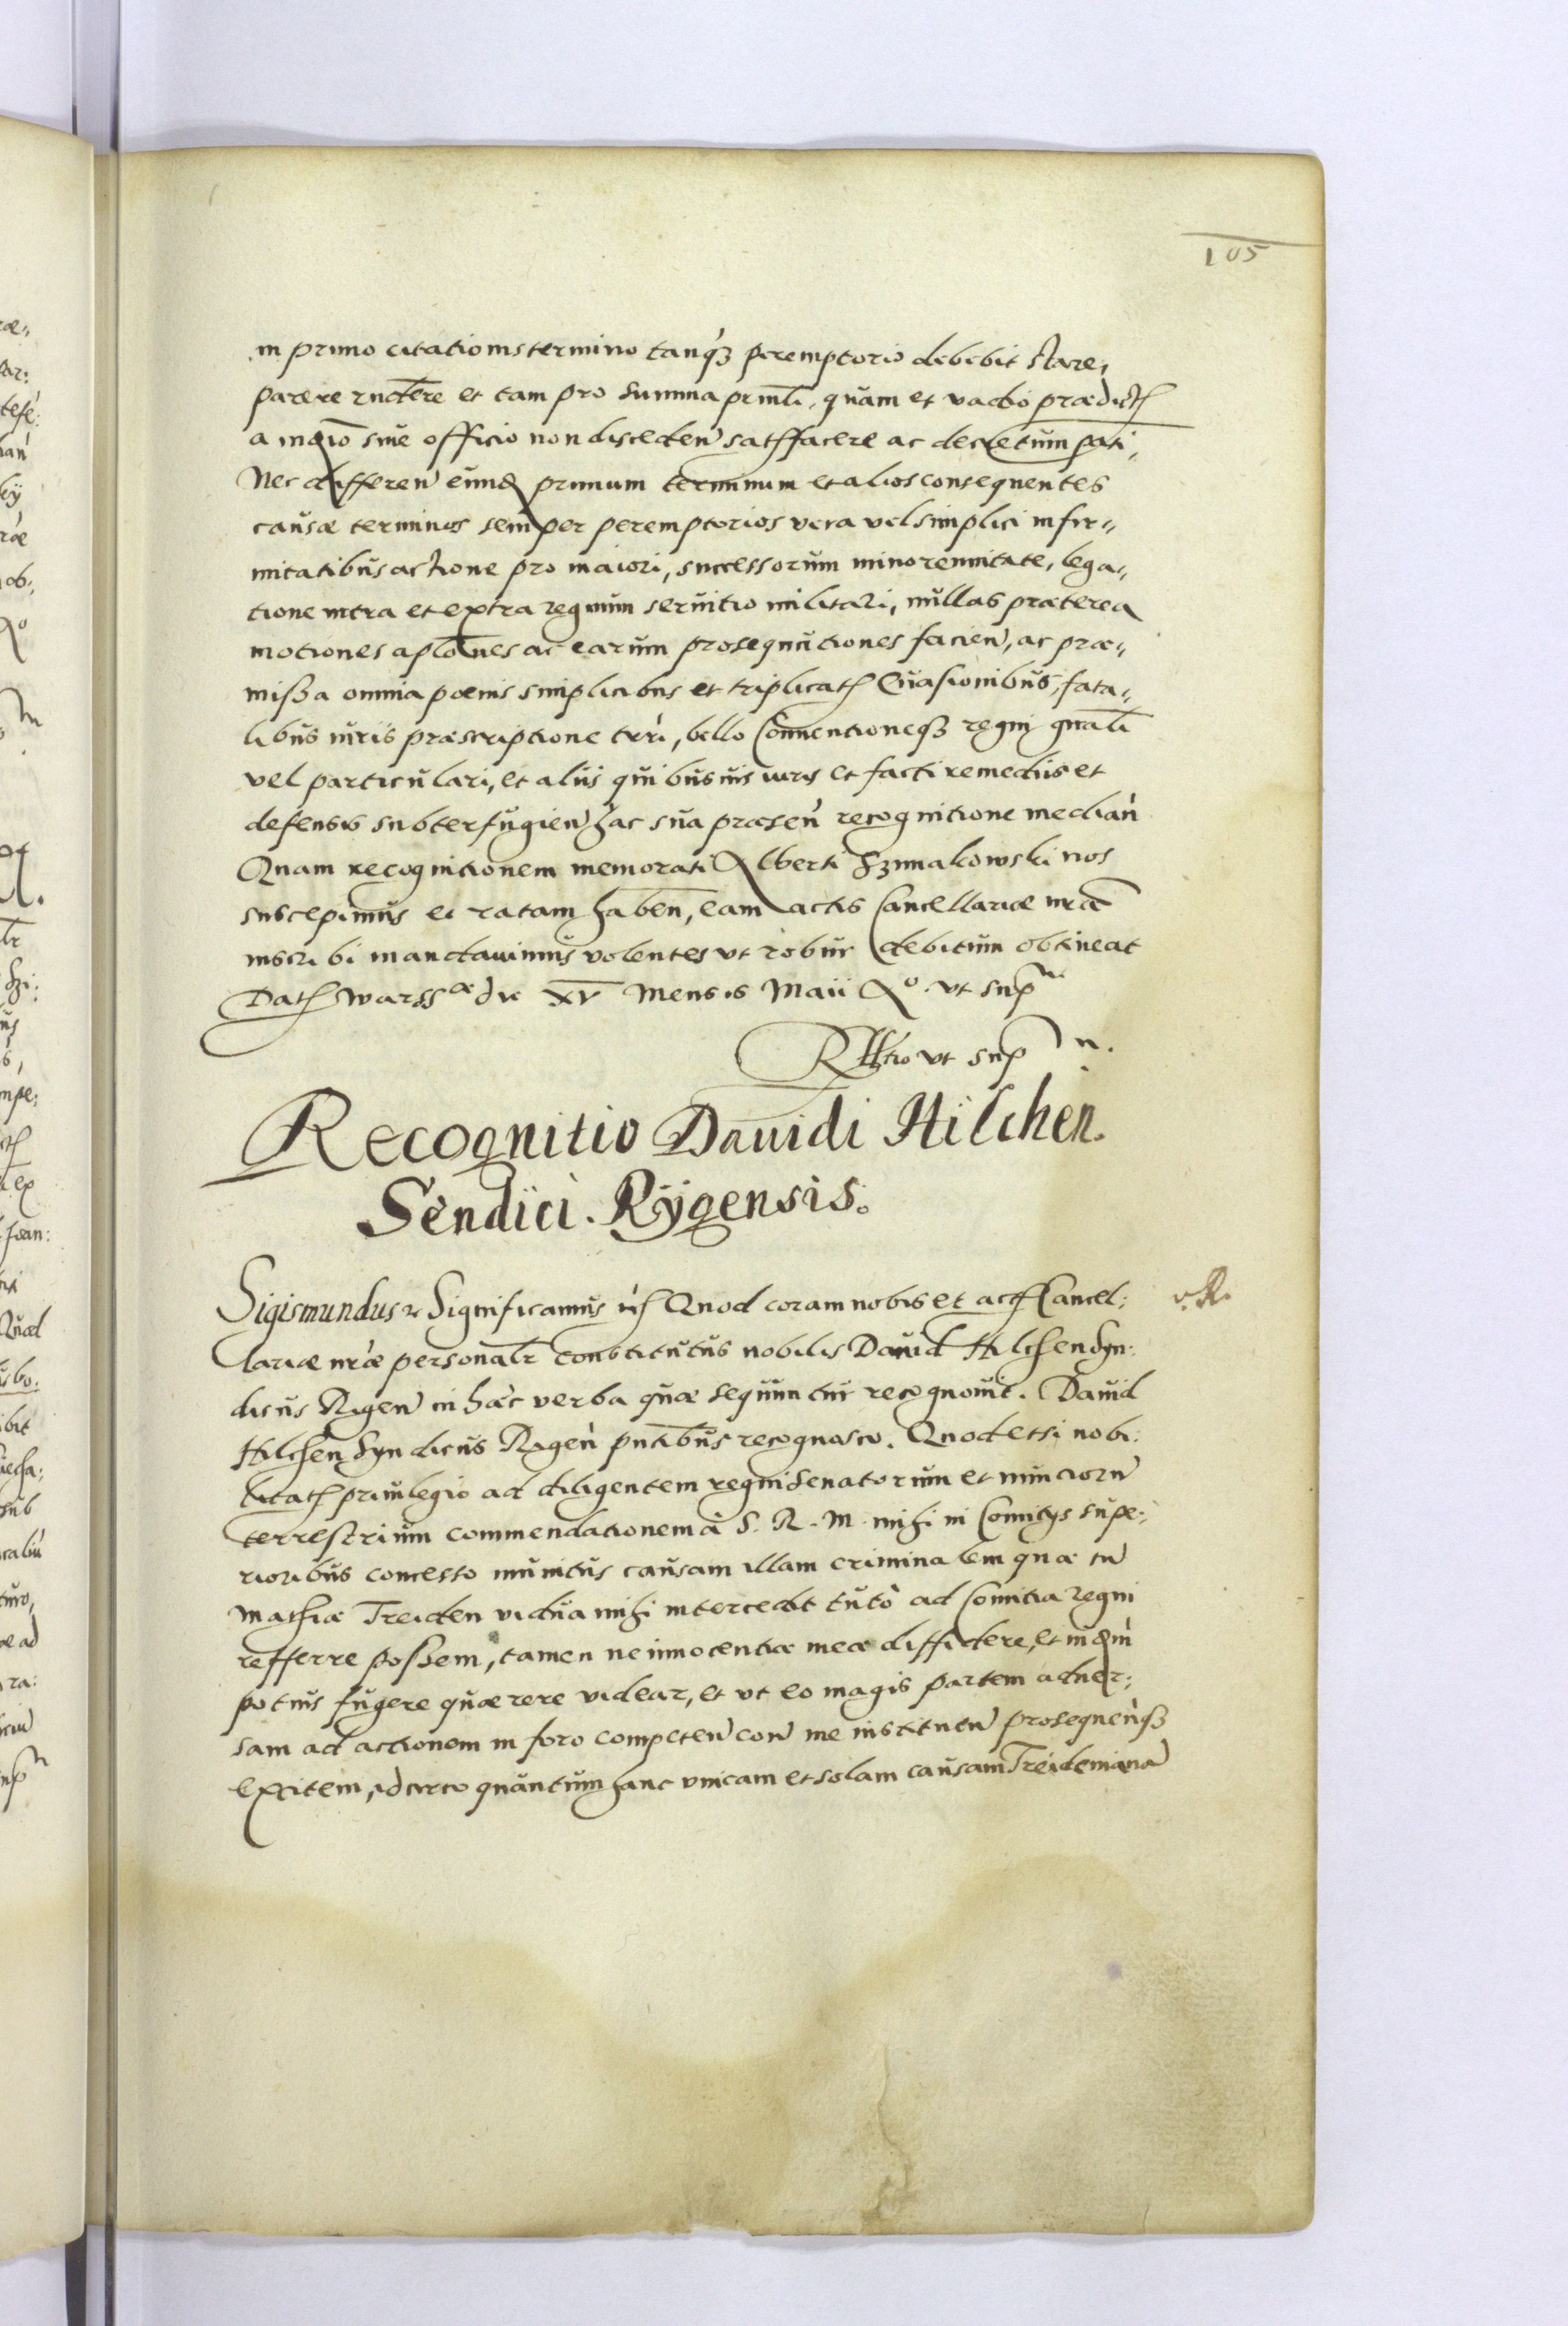 105
in primo citationis termino tanq̀ꝫ peremptorio debebit stare,
parere rndere et tam pro summa prinli, quam et vadio prædictꝭ
a indio siue officio non disceden̄ satffacere ac decretum pati,
Nec differen̄ eund primum terminum et alios consequentes
causæ terminos semper peremptorios vera vel simplici infir,,
mitatibus actione pro maiori, successorum minorennitate, lega,,
tione intra et extra regnum seruitio militari, nullas præterea
motiones aplōnes ac earum prosequutiones facien̄, ac præ,,
missa omnia poenis simplicibus et triplicatꝭ Euasionibus, fata,,
libus iuris præscriptione terri, bello Conuentioneqꝫ regni gnali
vel particulari, et aliis quibusuis iuris et facti remediis et
defensis subterfugien̄ hac sua præsen̄ recognitione median̄
Quam recognitionem memorati Alberti Szimakowski nos
suscepimus et ratam haben̄, eam actis Cancellariæ nræ
inscribi mandauimus volentes vt robur debitum obtineat
Datꝭ Warssæ die XV Mensis Maii Aº. vt sup
Rltio vt sup
Recognitio Dauidi Hilchen.
Sendici. Rÿgensis.
Sigismundus Significamus Quod coram nobis et actꝭ Cancel:
lariæ nræ personalr constitutus nobilis Dauid Hilchen Syn:
dicus Rigen̄ in hæc verba quæ sequuntur recognouit. Dauid
Hilchen Syndicus Rigen̄ pntibus recognosco. Quod etsi nobi:
litatꝭ priuilegio ad diligentem regni senatorum et nunciorū
terrestrium commendationem à S. R. M. mihi in Comitijs supe:
rioribus concesso munitus causam illam criminalem quæ cū
Mathiæ Treiden vidua mihi intercedit tutò ad Comitia regni
refferre possem, tamen ne innocentiæ meæ diffidere, et
potius fugere quærere videar, et vt eo magis partem aduer:
sam ad actionem in foro competen̄ con me institutū prosequenq̀ꝫ
excitem, idcirco quantum hanc vnicam et solam causam Treidenianā